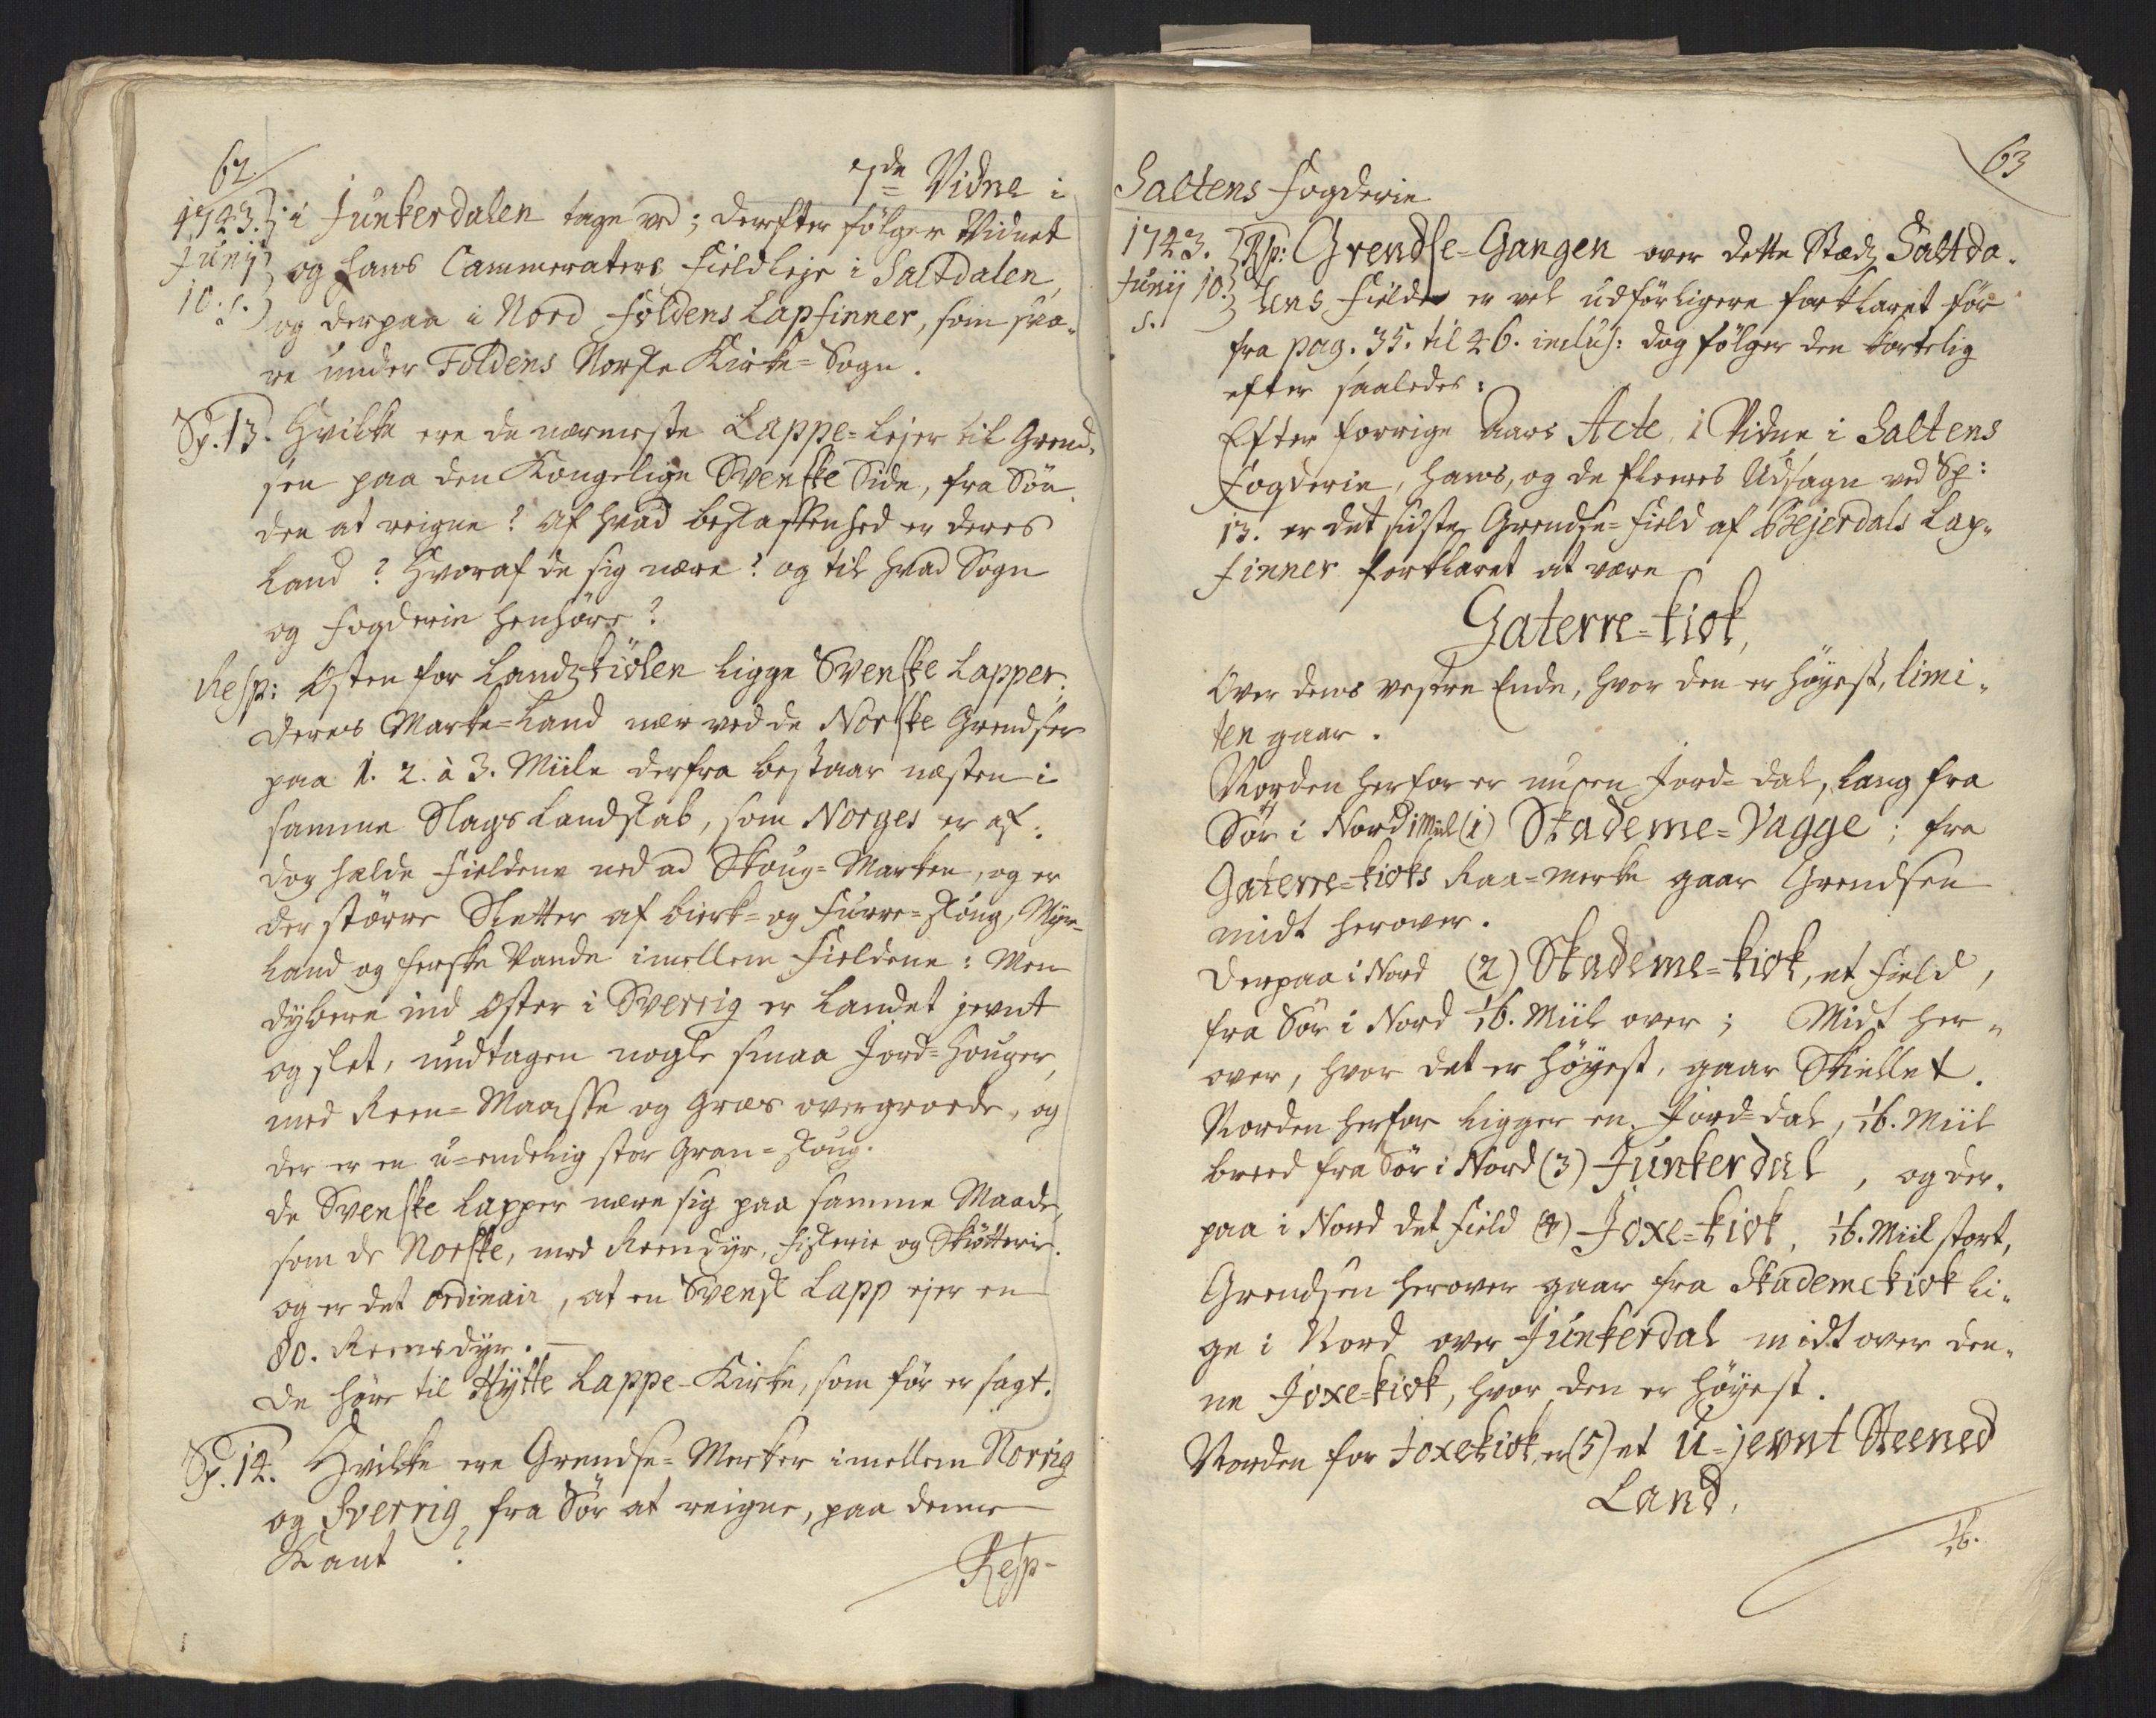 62.
7de Vidne i
1743. i Junkerdalen tage ved; derefter fölger Vidnet
Junij og hans Cammeraters Fieldleje i Saltdalen,
10. s. og derpaa i Nord Foldens Lapfinner, som sva-
re under Foldens Norske Kirke-Sogn.
Sp. 13. Hvilke ere de nærmeste Lappe-Lejer til Grend-
sen paa den Kongelige Svenske Side, fra Sön
den at reigne? Af hvad beskaffenhed er deres
Land? Hvoraf de sig nære? og til hvad Sogn
og Fogderie henhöre?
Resp: Östen for Landskiölen ligge Svenske Lapper.
deres Marke-Land nær ved de Norske Grendser
paa 1. 2. à 3. Miile derfra bestaar næsten i
samme Slags Landskab, som Norges er af:
dog helde Fieldene ned ad Skoug-Marken, og er
der större Sletter af birk- og Furre-Skoug, Myre-
Land og ferske Vande imellem Fieldene: Men
dybere ind Öster i Sverrig er Landet jevnt
og slet, undtagen nogle smaa Jord-Houger,
med Reen-Maasse og Græs overgroede, og
der er en u-endelig stor Gran-Skoug.
de Svenske Lapper nære sig paa samme Maade,
som de Norske, med Reendyr, Fiskerie og Skiötterie.
og er det ordinair, at en Svensk Lapp ejer en
80. Reensdyr.
De höre til Hytte Lappe-Kirke, som för er sagt.
Sp. 14. Hvilke ere Grendse-Merker imellem Norrig
og Sverrig, fra Sör at reigne, paa denne
Kant?
Resp-
63
Saltens Fogderie
1743. Rsp: Grendse-Gangen over dette Stæd, Saltda-
Junij 10. lens Fielde er vel udförligere forklaret för
s. fra pag. 35. til 46. inclus: dog fölger den kortelig
efter saaledes:
Efter forrige Aars Acte, 1 Vidne i Saltens
Fogderie, hans, og de fleeres Udsagn ved Sp:
13. er det sidste Grendse-Field af Bejerdals Lap-
finner forklaret at være
Gaterre-kiok,
Over dens vestre Ende, hvor den er höyest, limi-
ten gaar.
Norden herfor er nu en Jord-dal, lang fra
Sör i Nord 1 Miil (1) Skademe-Vagge; fra
Gaterre-kioks Raa-merke gaar Grendsen
midt herover.
Derpaa i Nord (2) Skademe-kiok, et Field,
fra Sör i Nord 1/6. Miil over; Midt her-
over, hvor det er höyest, gaar Skiellet.
Norden herfor ligger en Jord-dal, 1/6. Miil
breed fra Sör i Nord (3) Junkerdal, og der-
paa i Nord det Field (4) Joxe-kiok, 1/6. Miil stort,
Grendsen herover gaar fra Skademekiok li-
ge i Nord over Junkerdal midt over den-
ne Joxe-kiok, hvor den er höyest.
Norden for Joxekiok er (5) et U-jevnt Steened
Land,
1/6.